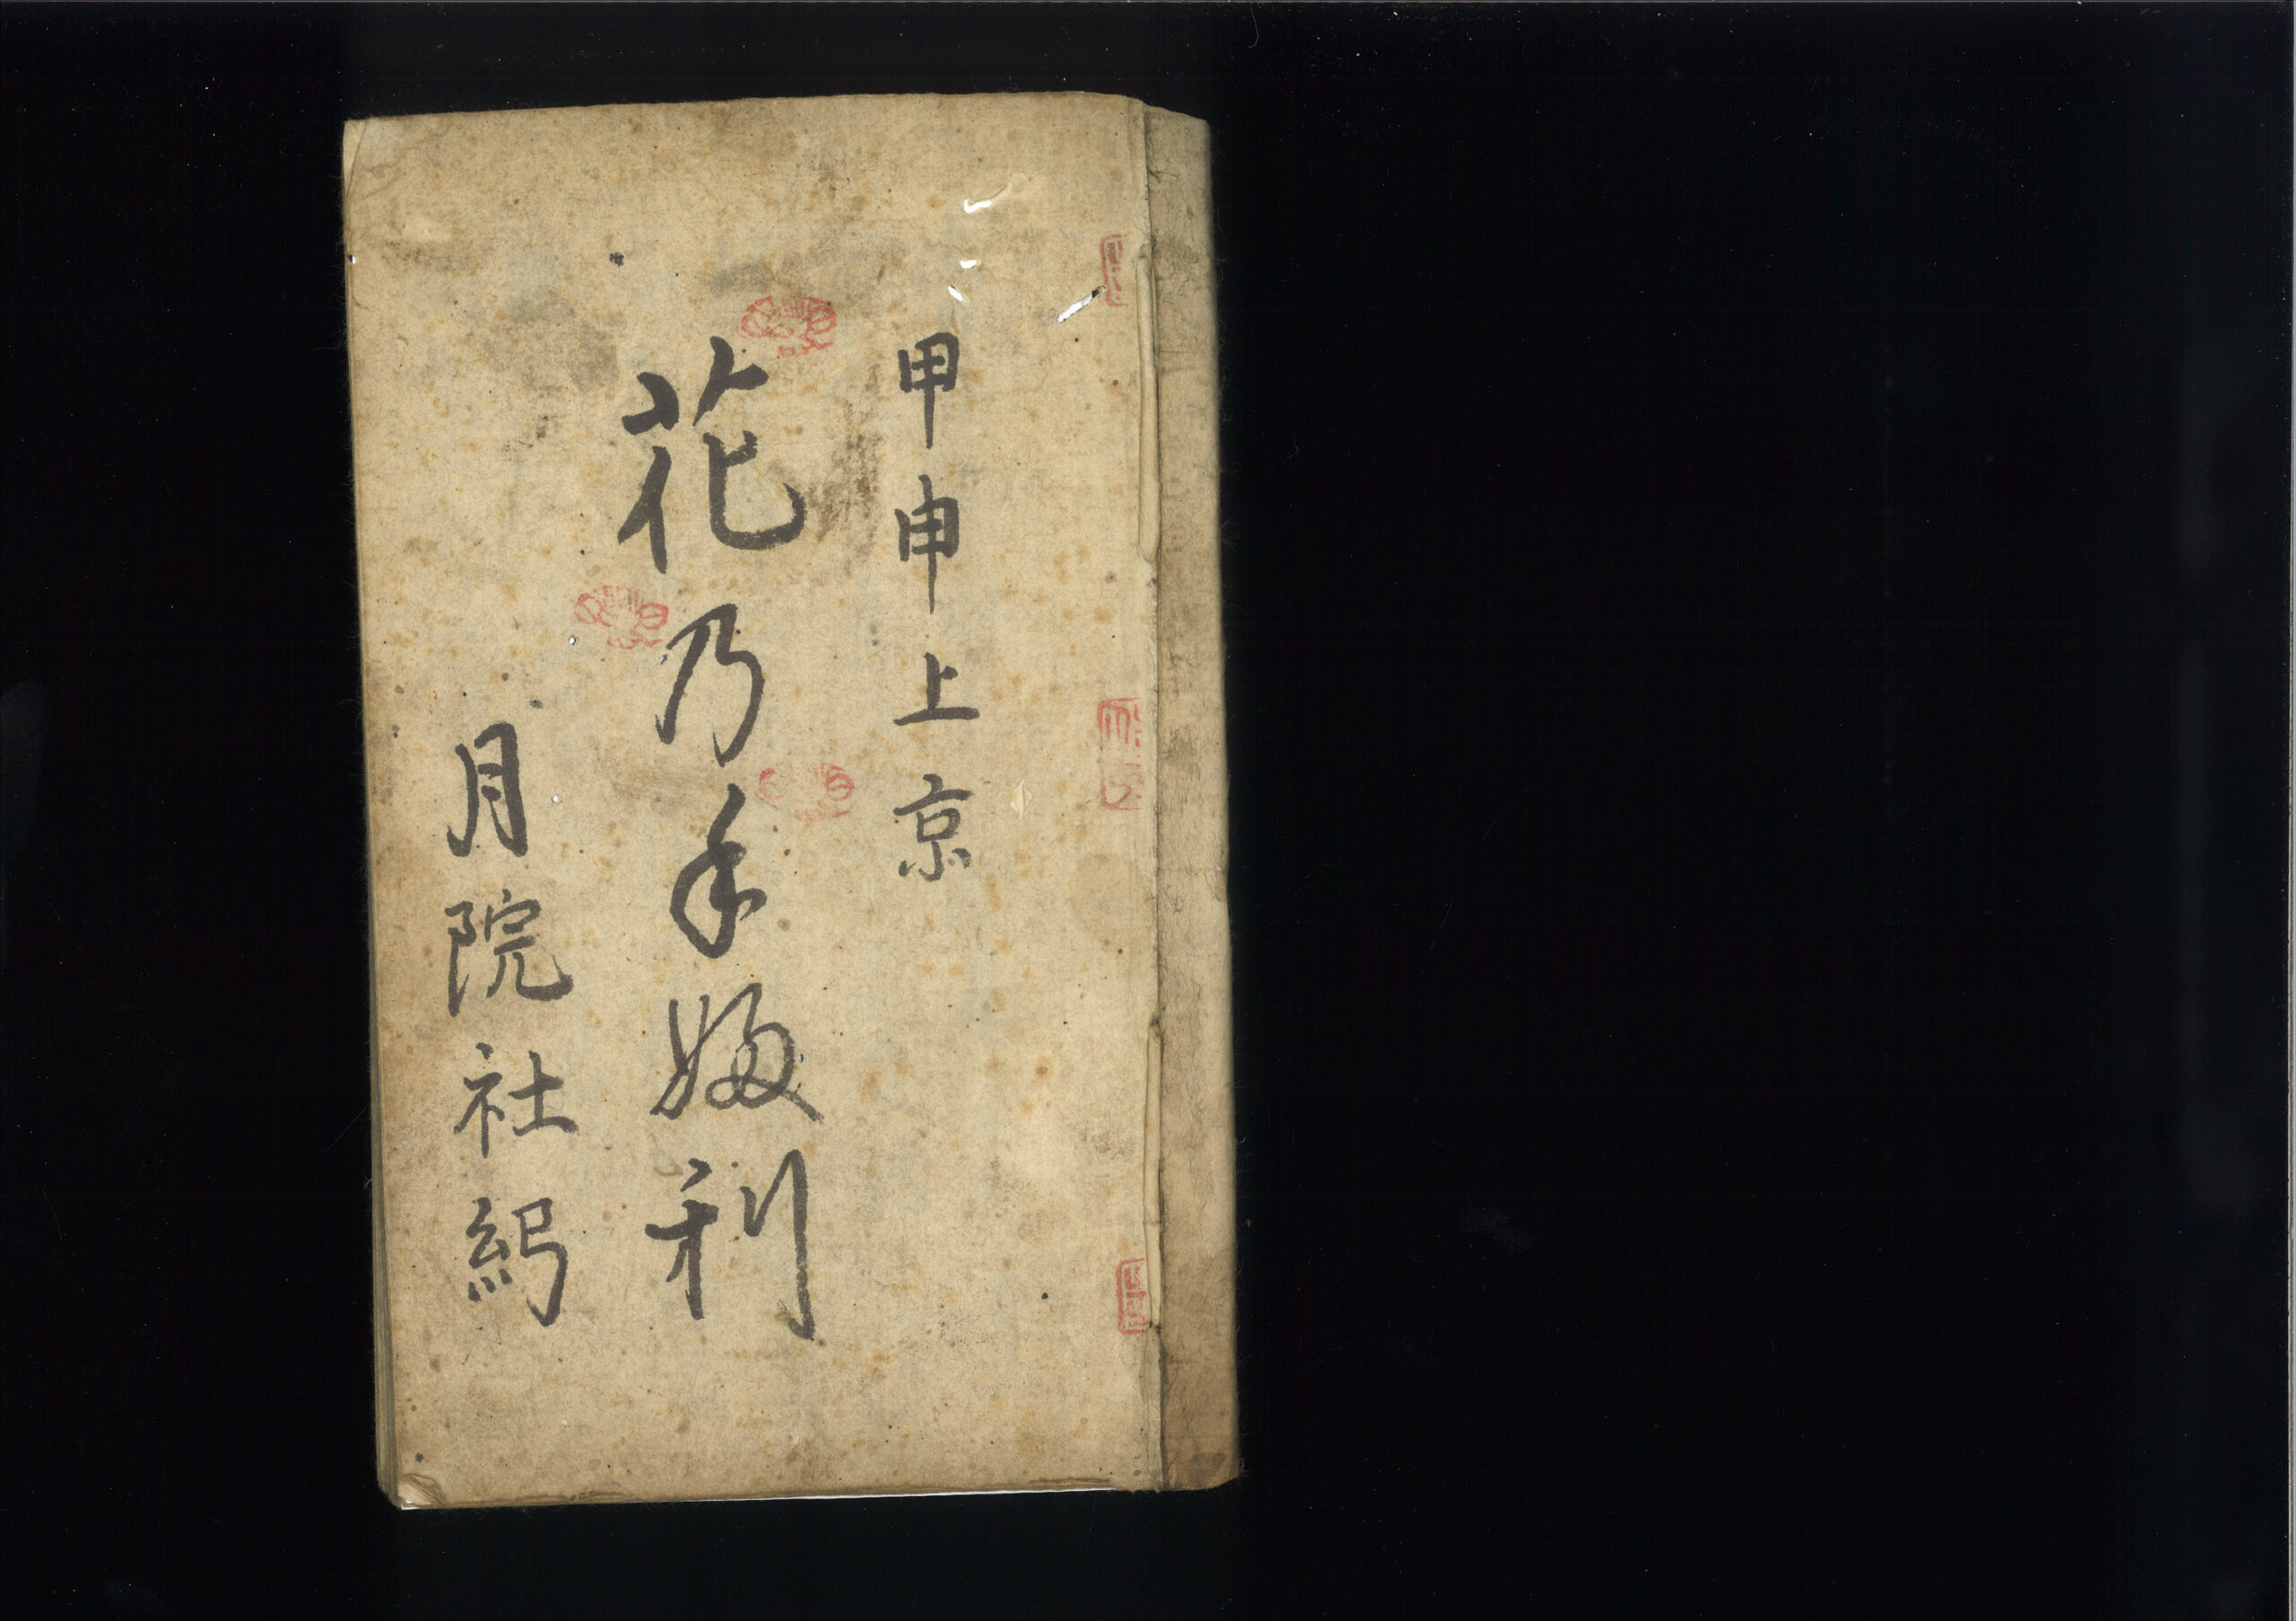 甲申上京
花乃手婦利
月院社